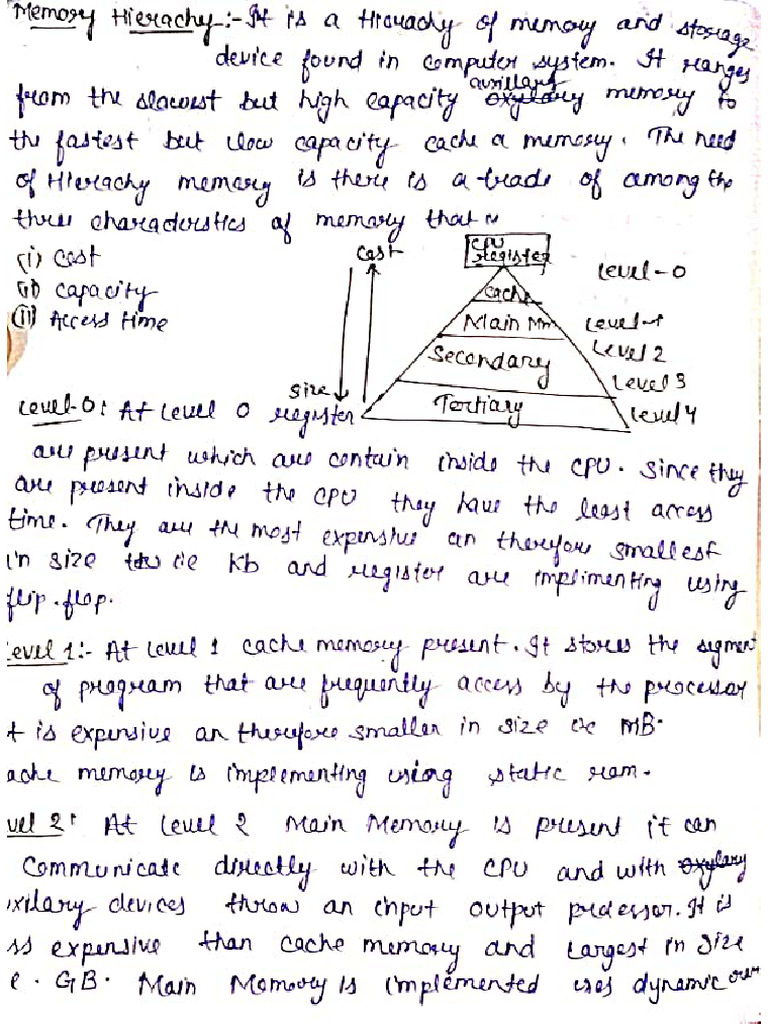 Memory Hierachy:- It is a Hierachy of memory and storage
device found in computer system. It ranges
from the slowest but high capacity auxillary memory to
the fastest but low capacity cache a memory. The need
of Hierachy memory is there is a trade of among the
three charactderstics of memory that is
(i) Cost
(ii) Capacity
(iii) Access time
Cost
Size
CPU
register
Cache
Main Mm
Secondary
Tertiary
Level-0
Level-1
Level 2
Level 3
Level 4
Level-0: At Level 0 register
are present which are contain inside the CPU. Since they
are present inside the CPU they have the least access
time. They are the most expensive an therefore smallest
in size ie Kb and register are implimenting using
flip.flop.
Level 1:- At Level 1 cache memory present. It stores the segment
of program that are frequently access by the processor
t is expensive an therefore smaller in size ie MB.
ache memory is implementing using static ram.
vel 2: At Level 2 Main Memory is present it can
Communicate directly with the CPU and with
xilary devices throw an input output prodessor. It is
ss expensive than cache memory and Largest in Size
e. GB. Main Memory is implemented uses dynamic ram